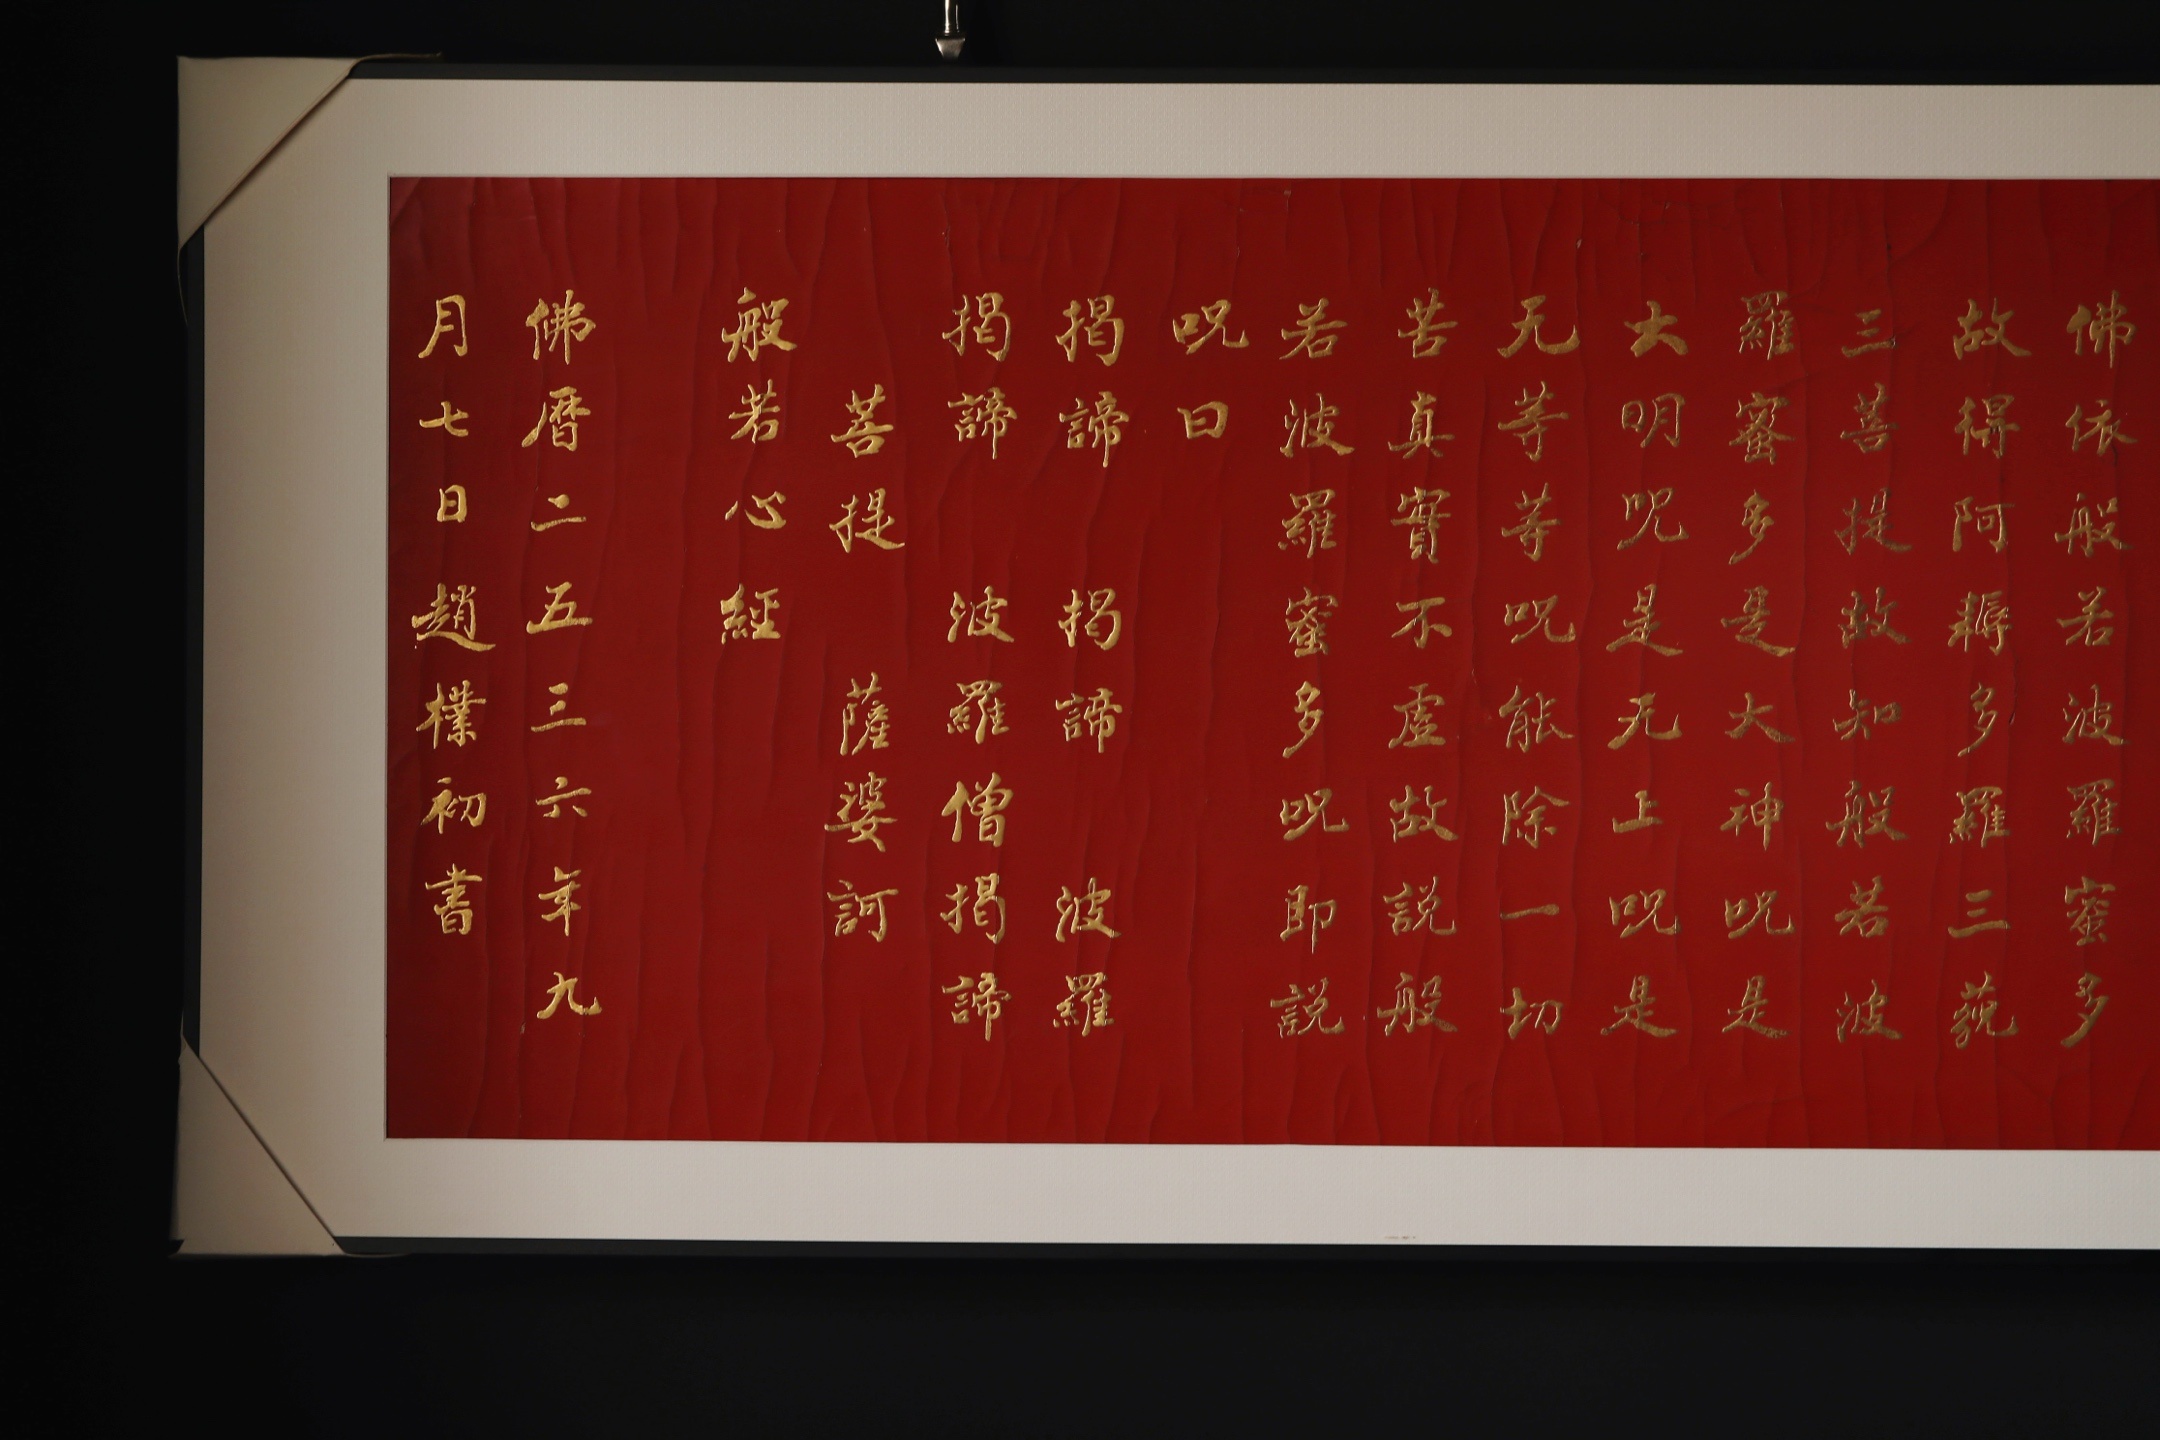 佛依般若波羅蜜多
故得阿耨多羅三藐
三菩提故知般若波
羅蜜多是大神呪是
大明呪是无上呪是
无等等呪能除一切
苦真實不虛故説般
若波羅蜜多呪即説
呪曰
揭諦 揭諦 波羅
揭諦 波羅僧揭諦
菩提 薩婆訶
般若心經
佛暦二五三六年九
月七日趙樸初書